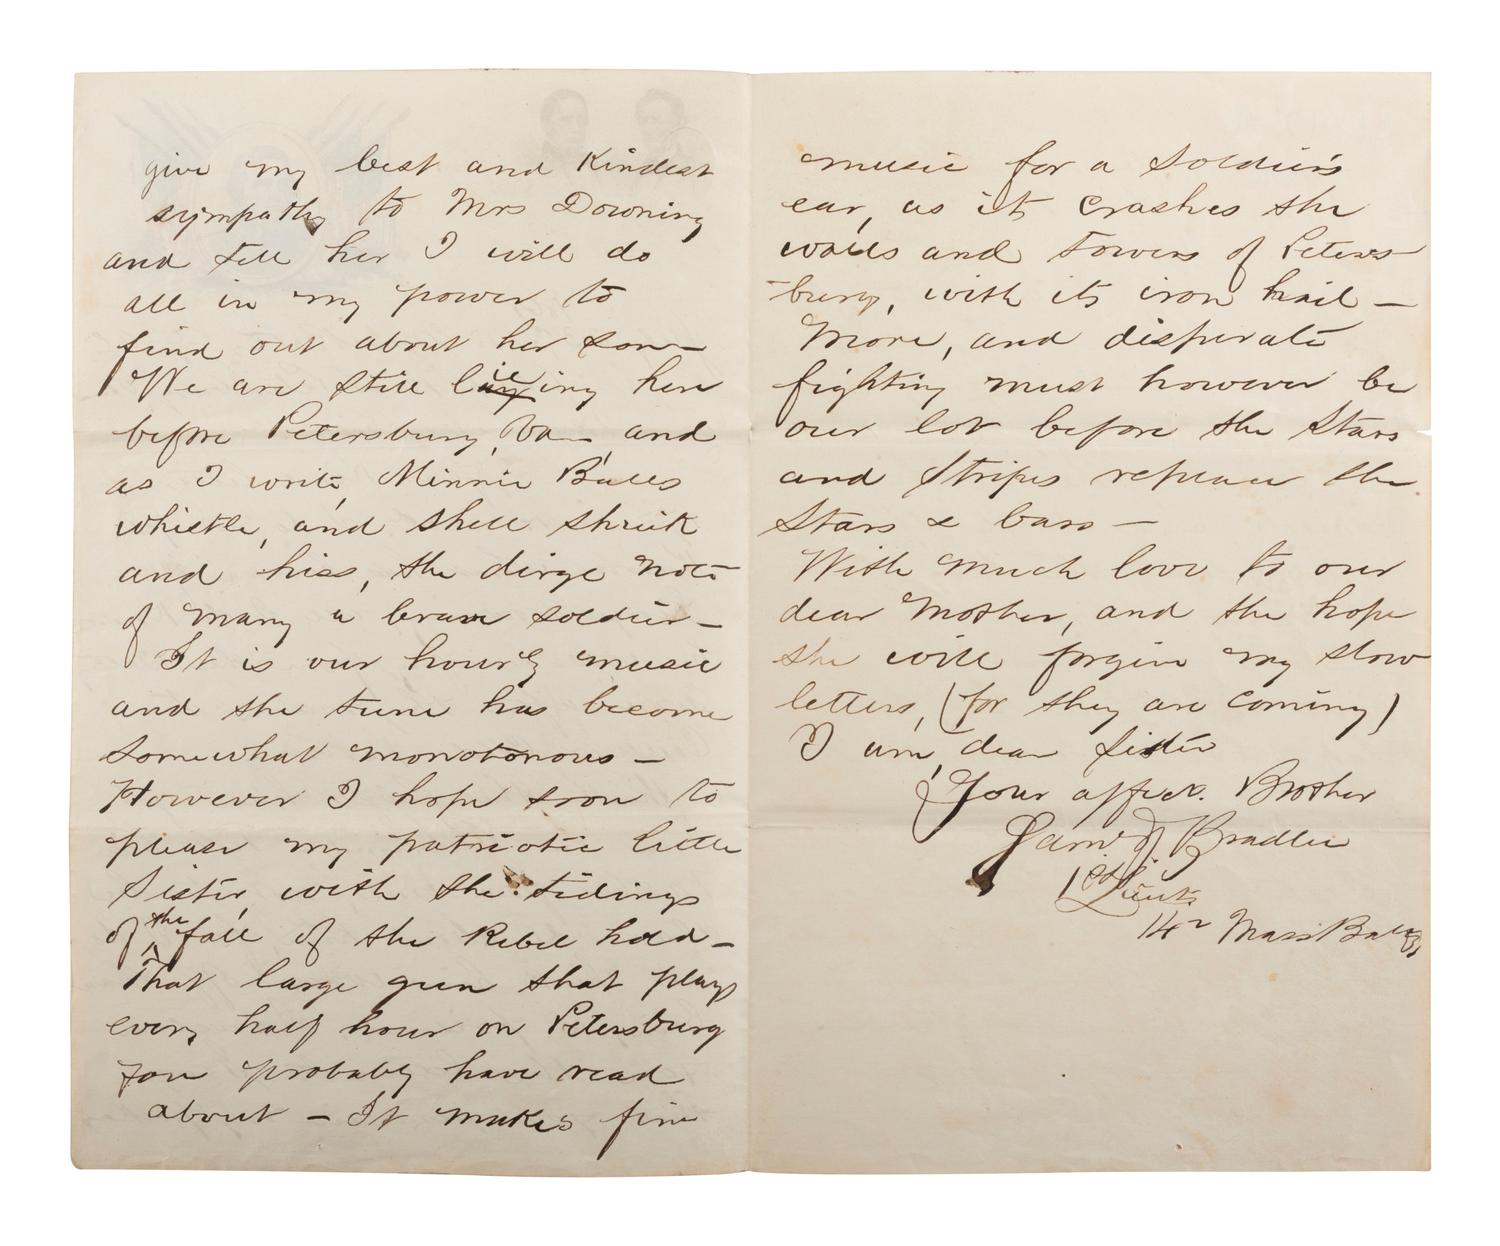 give my best and Kindest
sympathy to Mrs Downing
and tell her I will do
all in my power to
find out about her son—
We are still lieing here
before Petersburg, Va— and
as I write, Minnie Balls
whistle, and shell shriek
and hiss, the dirge note
of many a brave soldier—
It is our hourly music
and the tune has become
somewhat monotonous—
However I hope soon to
please my patriotic little
Sister, with the tidings
of the fall of the Rebel hold—
That large gun that plays
every half hour on Petersburg
you probably have read
about — It makes fine
music for a soldier's
ear, as it crashes the
walls and towers of Peters-
-burg, with its iron hail—
More, and disperate
fighting must however be
our lot before the Stars
and Stripes replace the
Stars & bars—
With much love to our
dear Mother, and the hope
she will forgive my slow
letters, (for they are coming)
I am, dear sister
Your affect. Brother
Sam'l J Bradlee
1st Lieut.
14th Mass Baty,